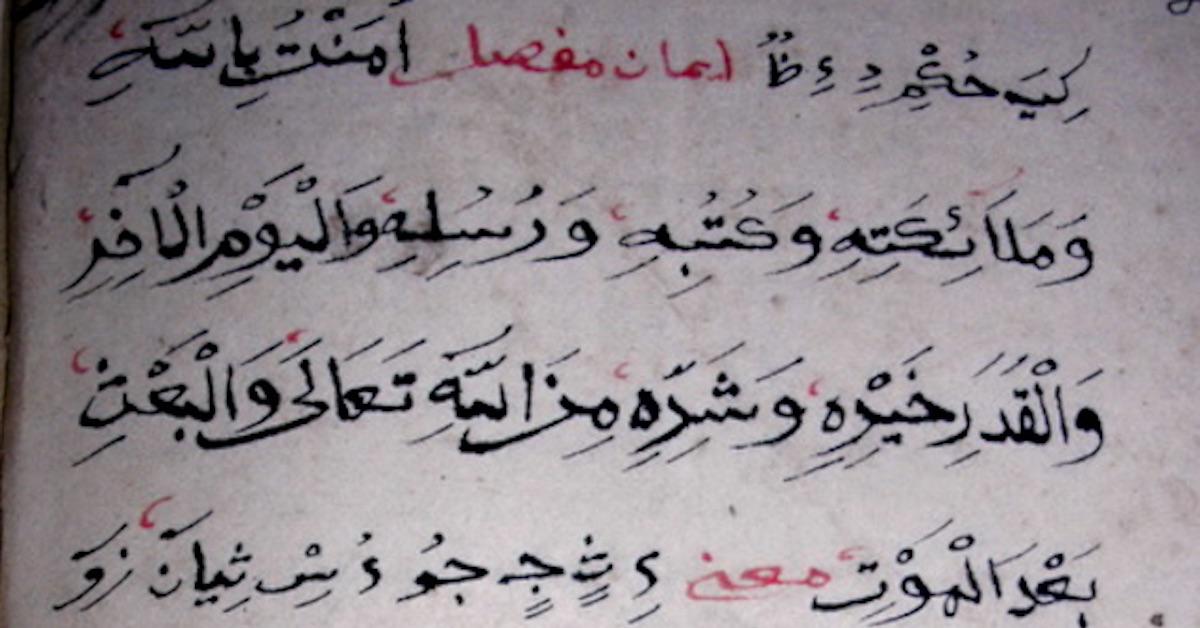 كِيَ حُكْمِ دِ ءِ ظُ ايمان مفصل اٰمَنْتُ بِاللّٰهِ
وَمَلَآئِكَتِهٖ وَكُتُبِهٖ وَرُسُلِهٖ وَالْيَوْمِ الْاٰخِرِ
وَالْقَدَرِ خَيْرِهٖ وَشَرِّهٖ مِنَ اللّٰهِ تَعَالٰى وَالْبَعْثِ
بَعْدَ الْمَوْتِ معنىٰ ءِ